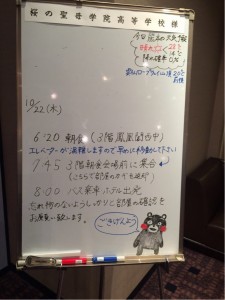 桜の聖母学院高等学校様
今日の天気予報
10/22(木)
6:20 朝食(3階鳳凰閣西中)
エレベーターが混雑しますので早めに移動して下さい
7:45 3階朝食会場前に集合
(こちらで部屋のカギを返却)
8:00 バス乗車ホテル出発
忘れ物のないようしっかりと部屋の確認を
お願い致します。
ごきげんよう